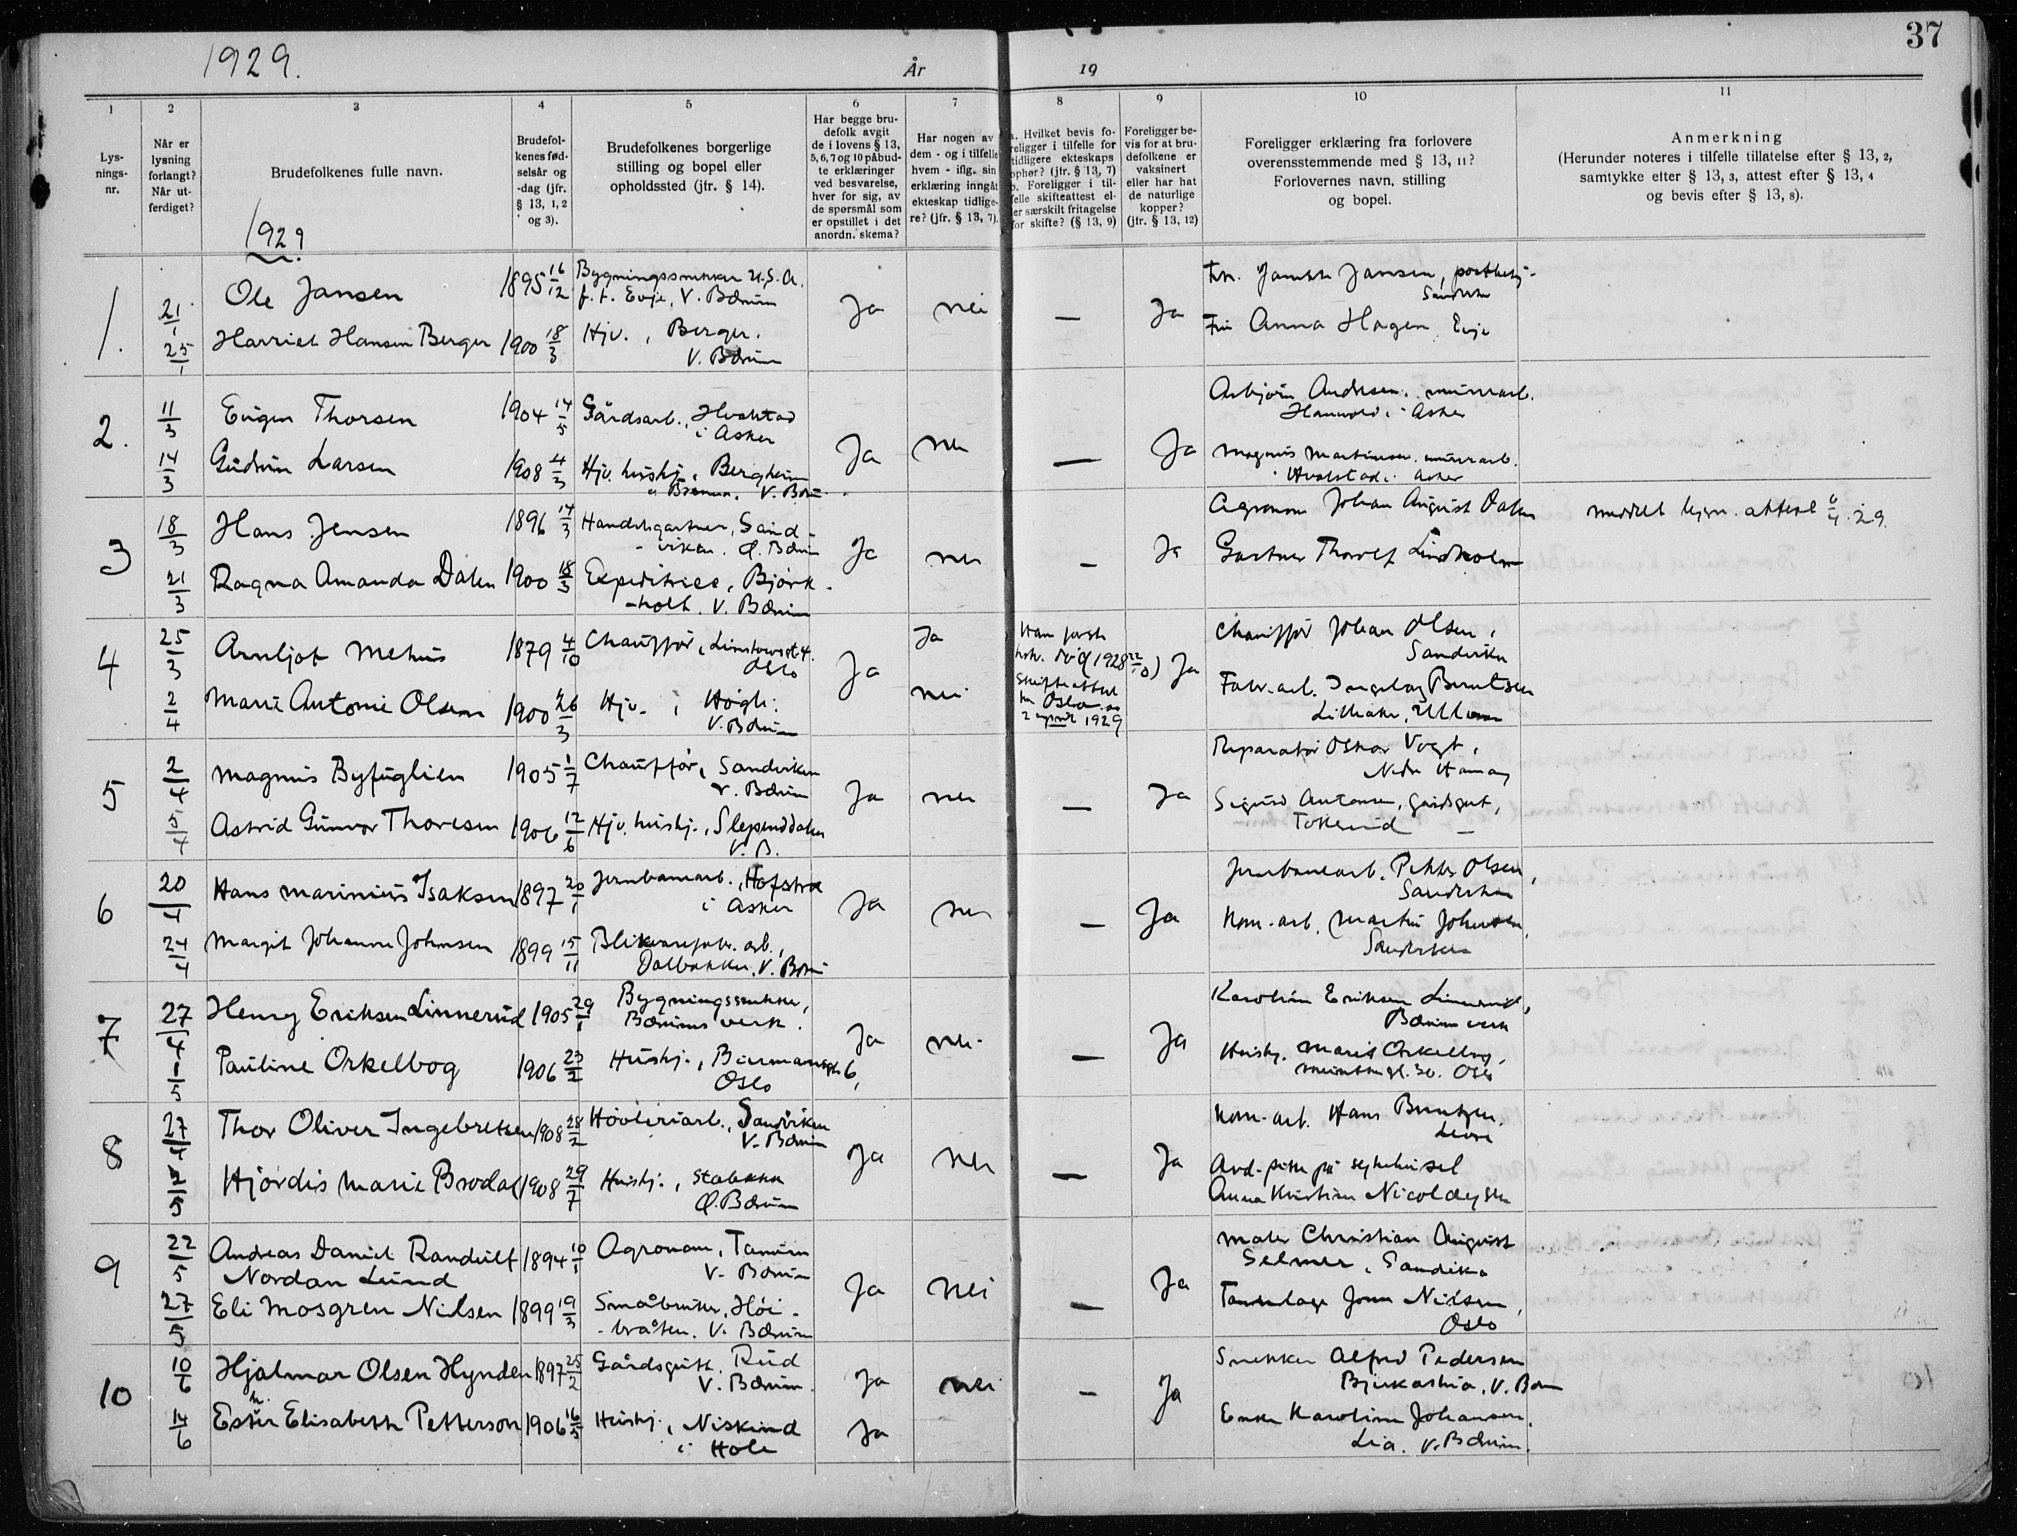 1929.
År
19
37
1
2
3
4
5
6
7
8
9
10
11
Lys-
nings-
nr.
Når er
lysning
forlangt?
Når ut-
ferdiget?
Brudefolkenes fulle navn.
Brudefol-
kenes fød-
selsår og
-dag (jfr.
§ 13, 1, 2
og 3).
Brudefolkenes borgerlige
stilling og bopel eller
opholdssted (jfr. § 14).
Har begge bru-
defolk avgit
de i lovens § 13,
5, 6, 7 og 10 påbud-
te erklæringer
ved besvarelse,
hver for sig, av
de spørsmål som
er opstillet i det
anordn. skema?
Har nogen av
dem - og i tilfelle
hvem - iflg. sin
erklæring inngåt
ekteskap tidlige-
re? (jfr. § 13, 7).
a. Hvilket bevis fo-
religger i tilfelle for
tidligere ekteskaps
ophør? (jfr. § 13, 7)
b. Foreligger i til-
felle skifteattest el-
ler særskilt fritagelse
for skifte? (§ 13, 9)
Foreligger be-
vis for at bru-
defolkene er
vaksinert
eller har hat
de naturlige
kopper?
(jfr. § 13, 12)
Foreligger erklæring fra forlovere
overensstemmende med § 13, 11?
Forlovernes navn, stilling
og bopel.
Anmerkning
(Herunder noteres i tilfelle tillatelse efter § 13, 2,
samtykke efter § 13, 3, attest efter § 13, 4
og bevis efter § 13, 8).
1929
1.
21/1
Ole Jansen
1895 16/12
Bygningssnekker U.S.A.
p.t. Evje, V. Bærum
Ja
nei
—
Ja
Jansen,
Sandvika
25/1
Harriet Hansen Berger
1900 18/3
Hjv., Berger.
V. Bærum
Anna Hagen Evje
2.
11/3
Eugen Thorsen
1904 14/5
Gårdsarb., Hvalstad
i Asker
Ja
nei
—
Ja
Asbjørn Andresen, murarb.
i Asker
14/3
Gudrun Larsen
1908 4/3
Hjv. hushj., Bergheim
V. Bærum
Magnus Martinsen, murarb.
Hvalstad i Asker
3
18/3
Hans Jensen
1896 14/3
Handelsgartner, Sand-
viken. Ø. Bærum
Ja
nei
—
Ja
Agronom Johan August Dalen
meddelt attest 6/4.29.
21/3
Ragna Amanda Dalen
1900 18/3
Expeditrice, Bjørk-
-holt. V. Bærum
Gartner Thorolf Lindholm
4
25/3
Arnljot Mehus
1879 4/10
Chauffør, Linstowsgt 4.
Oslo
Ja
Ja
Ham forst
hstr. død 1928 22/10)
Skifteattest
fra Oslo av
2 april 1929
Ja
Chauffør Johan Olsen,
Sandvika
2/4
Marie Antonie Olsen
1900 26/3
Hjv. i Høgli.
V. Bærum
nei
Fabr.arb. Ingolay Berntsen
Lilleaker, Ullern
5
2/4
Magnus Byfuglien
1905 1/7
Chauffør, Sandviken
V. Bærum
Ja
nei
—
Ja
Reparatør Oskar Vogt,
Nedre Hamang
5/4
Astrid Gunvor Thoresen
1906 12/6
Hjv. hushj., Slependdalen
V. B.
Sigurd Antonsen, gårdsgut,
Tokerud
6
20/4
Hans Marinius Isaksen
1897 20/1
Jernbanearb., Hofstad
i Asker
Ja
nei
—
Ja
Jernbanearb. Petter Olsen,
Sandviken
24/4
Margit Johanne Johnsen
1899 15/11
Blikvarefabr. arb.,
Dalbakken, V. Bærum
Kom-arb. Martin Johnsen,
Sandviken
7
27/4
Henry Eriksen Linnerud
1905 29/1
Bygningssnekker,
Bærums verk.
Ja
nei
—
Ja
Karolin Eriksen Linnerud,
Bærums verk
1/5
Pauline Orkelbog
1906 23/2
Hushj., Biermansgt. 6,
Oslo
Hushj. Marie Orkelbog,
Oslo
8
27/4
Thor Oliver Ingebretsen
1908 28/2
Høvleriarb., Sandviken
V. Bærum
Ja
nei
—
Ja
Kom-arb. Hans Berntzen,
Levre
2/5
Hjørdis Marie Brodal
1908 29/7
Hushj., Stabekk
Ø. Bærum
Avd- på sykehuset
Anna Kristine Nicolaysen
9
22/5
Andreas Daniel Randulf
Nordan Lund
1894 10/1
Agronom, Tanum
V. Bærum
Ja
nei
—
Ja
Maler Christian August
Selmer, Sandvika
27/5
Eli Mosgren Nilsen
1899 19/3
Småbruker, Høi-
-bråten. V. Bærum
Tannlæge Jonn Nilsen,
Oslo
10
10/6
Hjalmar Olsen Hynden
1897 25/2
Gårdsgutt, Rud
V. Bærum.
Ja
nei
—
Ja
Snekker Alfred Pedersen
V. Bærum
14/6
Ester Elisabeth Petterson
1906 16/5
Hushj., Niskind
i Hole
Ja
Enke Karoline Johansen,
Lia. V. Bærum.